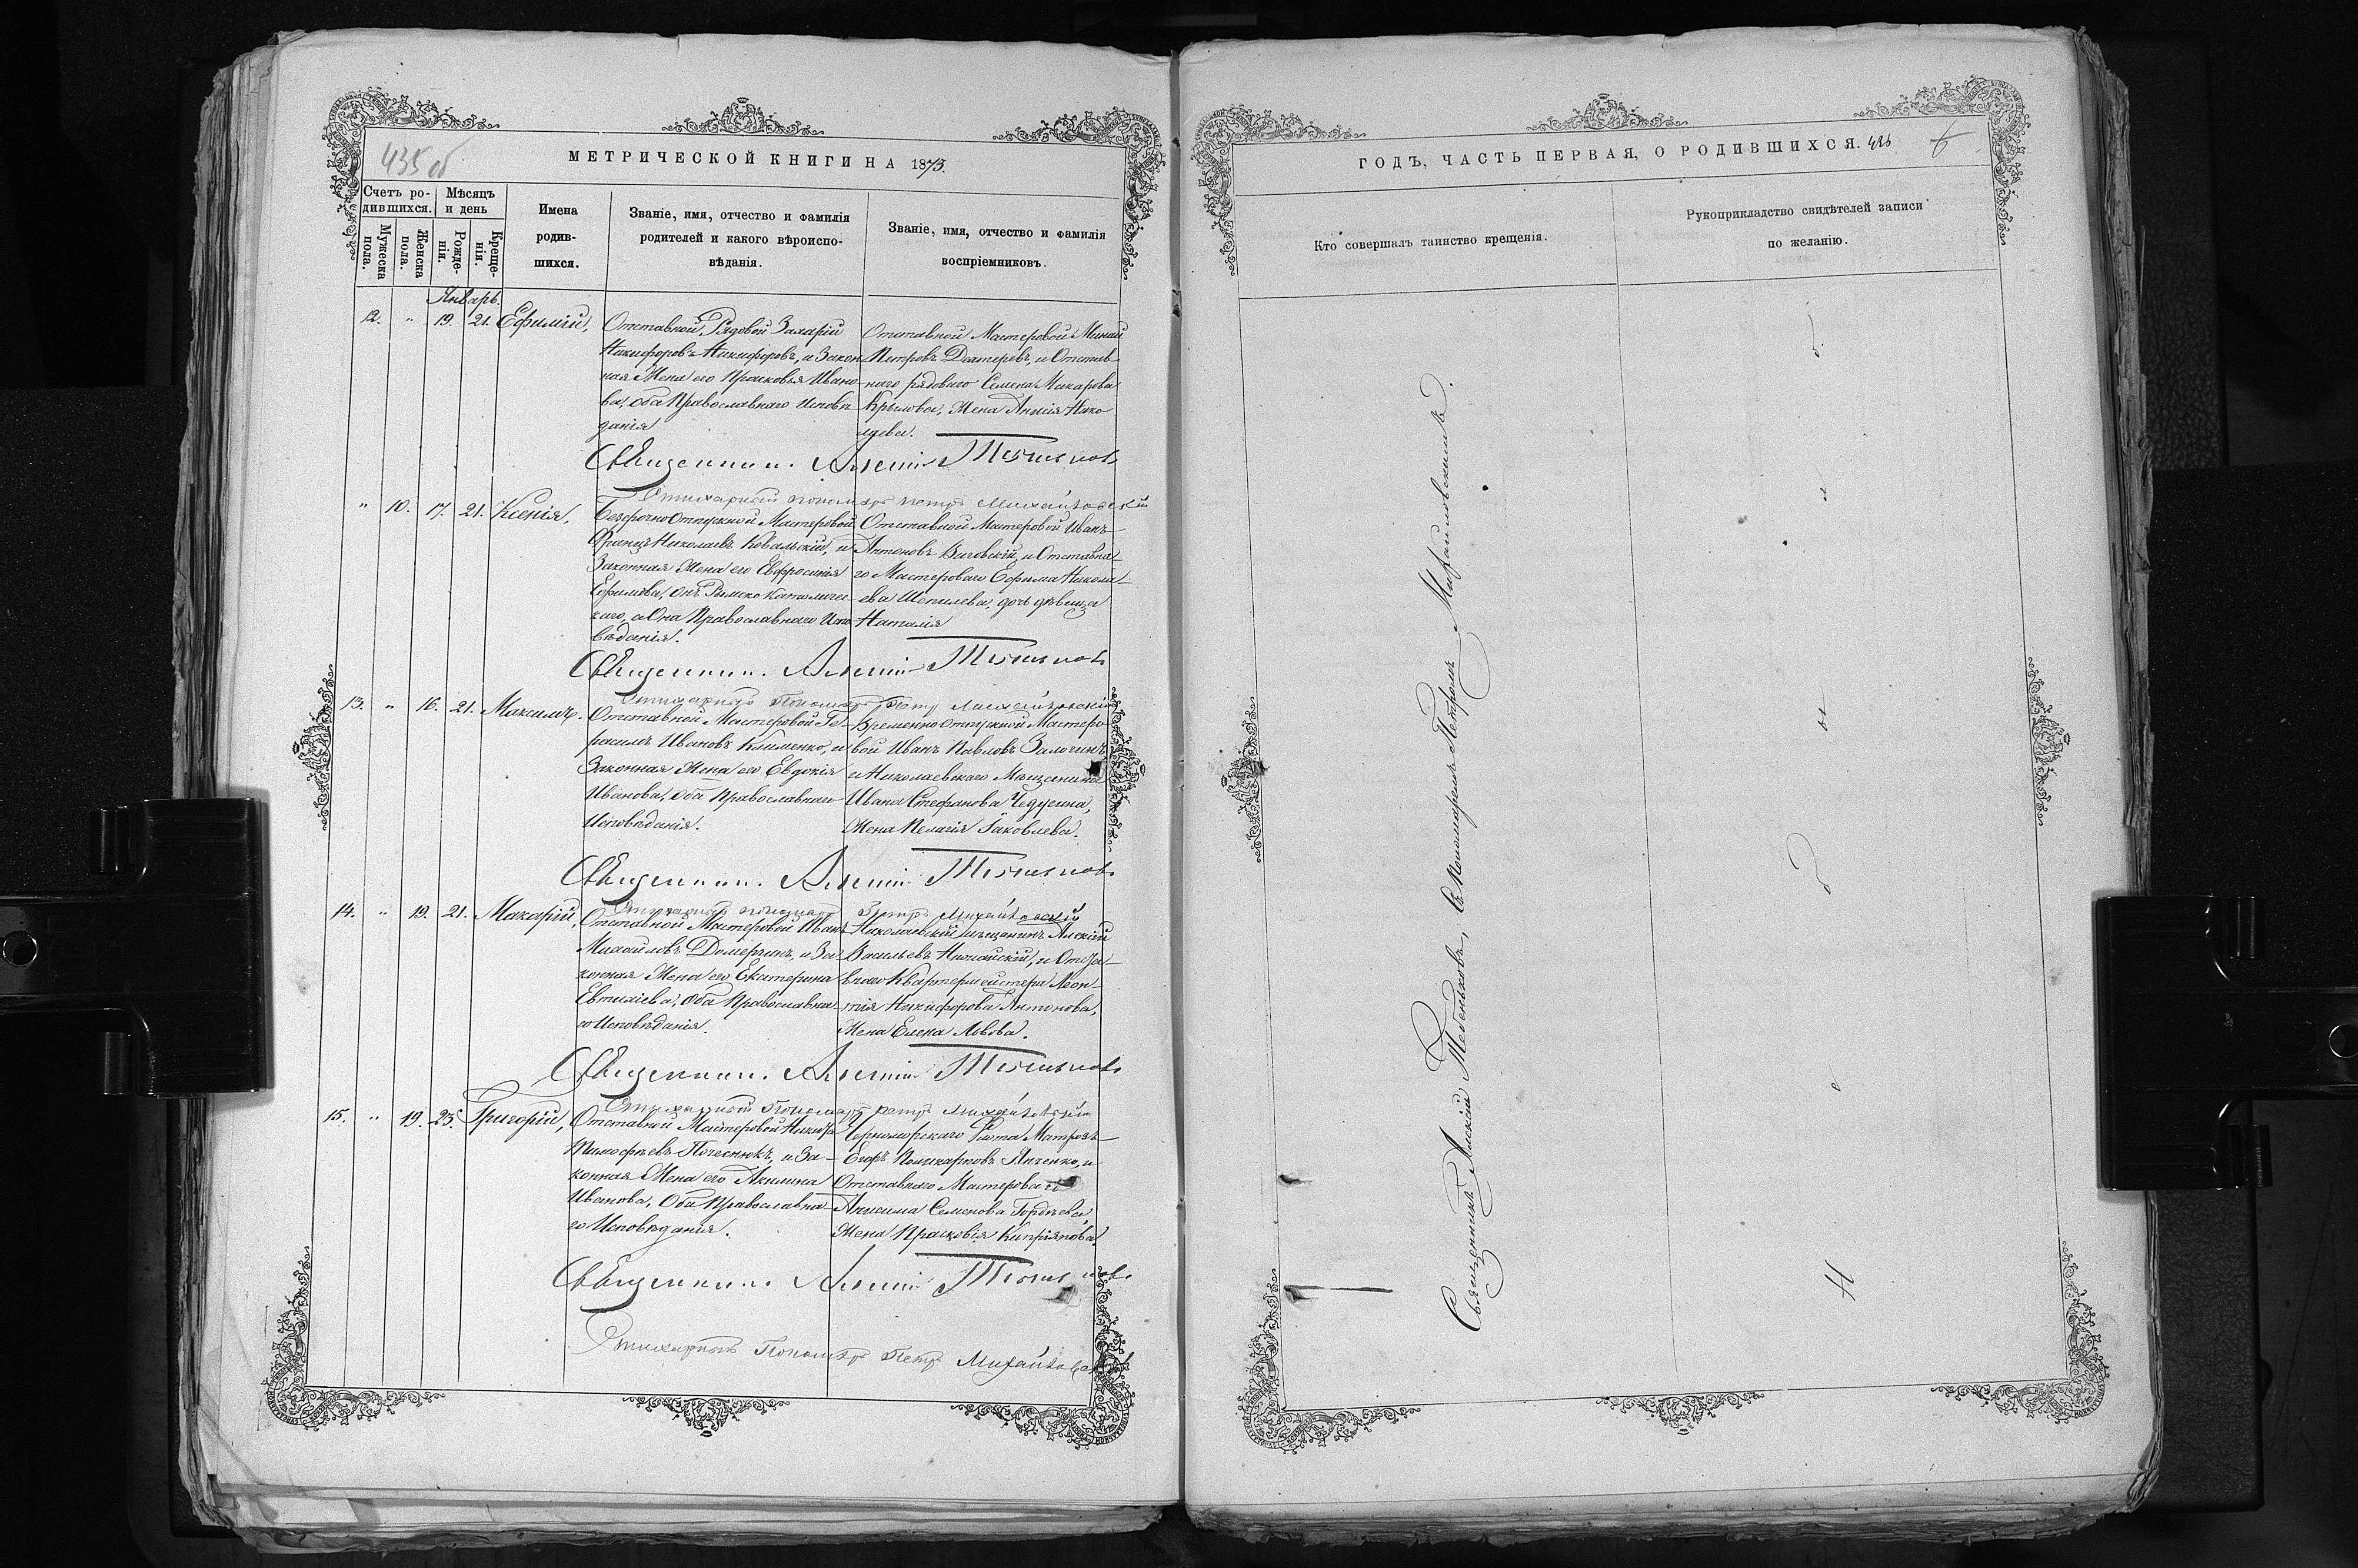 435 об
МЕТРИЧЕСКОЙ КНИГИ НА 1873.
Счетъ ро-
дившихся.
Мѣсяцъ
и день
Мужеска
пола.
Женска
пола.
Рожде-
нія.
Креще-
нія.
Имена
родив-
шихся.
Званіе, имя, отчество и фамилія
родителей и какого вѣроиспо-
вѣданія.
Званіе, имя, отчество и фамилія
воспріемниковъ.
Январь.
12. " 19. 21. Ефимій,
Отставной Рядовой Захарій
Никифоровъ Никифоровъ, и Закон
ная Жена его Прасковья Ивано-
ва, оба Православнаго Исповѣ-
данія
Отставной Мастеровой Минай
Петровъ Дехтеревъ, и Отстав-
наго рядоваго Семена Макарова
Крылова, Жена Анисія Нико
лаева.
Священникъ Алексій
Стихарный пономарь Петръ Михайловскій
" 10. 17. 21. Ксенія,
Безсрочноотпускной Мастеровой
Францъ Николаевъ Ковальскій, и
Законная Жена его Евфросинія
Ефимова, онъ Римско Католичес-
каго, а Она Православнаго Испо-
вѣданія.
Отставной Мастеровой Иванъ
Антоновъ Виговскій, и Отставна-
го Мастероваго Ефима Никола-
ева Шепилева, дочь дѣвица
Наталія
Священникъ Алексій
Стихарный Пономарь Петръ Михайловскій
13. " 16. 21. Максимъ.
Отставной Мастеровой Ге-
расимъ Ивановъ Клименко, и
Законная Жена его Евдокія
Иванова, оба Православнаго
Исповѣданія.
Временно отпускной Мастеро-
вой Иванъ Павловъ Залогинъ
и Николаевскаго Мѣщанина
Ивана Стефанова
Жена Пелагія Іаковлева.
Священникъ Алексій
Стихарный пономарь Петръ Михайловскій
14. " 19. 21. Макарій,
Отставной Мастеровой Иванъ
Михайловъ Домергинъ, и За-
конная Жена его Екатерина
Евтихіева, оба Православна-
го Исповѣданія.
Николаевскій мѣщанинъ Алексій
Васильевъ и Отста-
внаго Квартермейстера Леон-
тія Никифорова Антонова,
Жена Елена Львова.
Священникъ Алексій
Стихарный Пономарь Петръ Михайловскій
15. " 19. 23. Григорій,
Отставной Мастеровой Никита
Тимофѣевъ Почеснюкъ, и За-
конная Жена его Акилина
Иванова, Оба Православна-
го Исповѣданія.
Черноморскаго Флота Матрозъ
Егоръ Поликарповъ Янченко, и
Отставнаго Мастероваго
Анисима Семенова Гордѣева
Жена Прасковія Кипріянова.
Священникъ Алексій
Стихарный Пономарь Петръ Михайловскій
ГОДЪ, ЧАСТЬ ПЕРВАЯ, О РОДИВШИХСЯ. 436 6
Кто совершалъ таинство крещенія.
Рукоприкладство свидѣтелей записи
по желанію.
Священникъ Алексій съ Пономаремъ Петромъ Михайловскимъ.